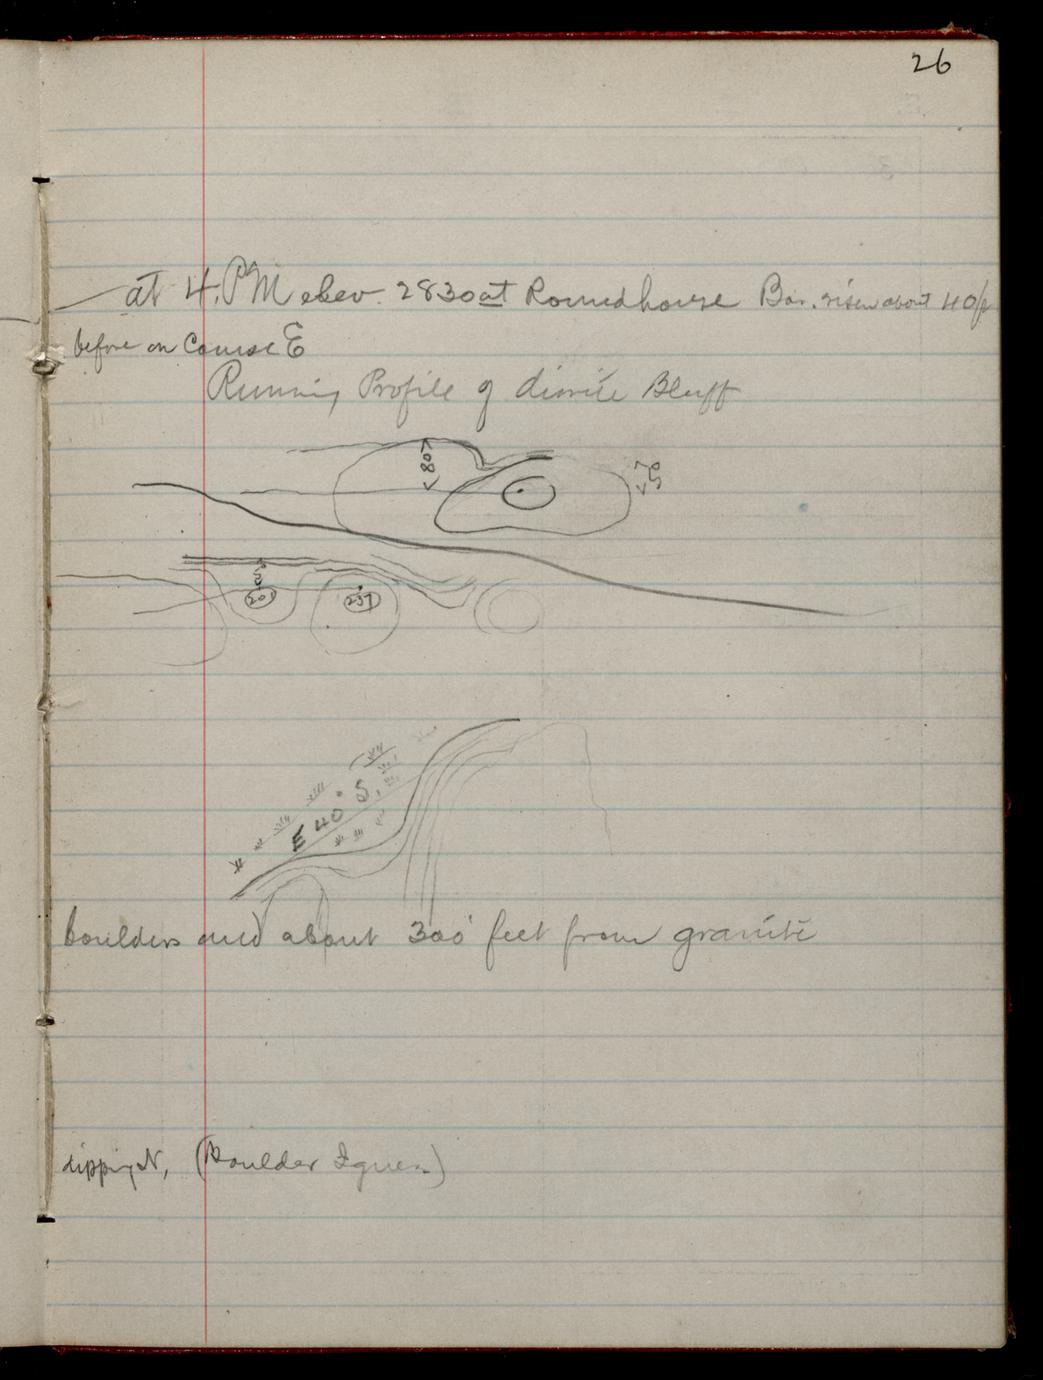 26
at 4. PM elev. 2830 at Roundhouse Bar. risen about 40 ft
before on Course E
Running Profile of diorite Bluff
<80>
<75>
201
237
E 40° S.
boulders and about 300' feet from granite
dipping N, (Boulder Igneu